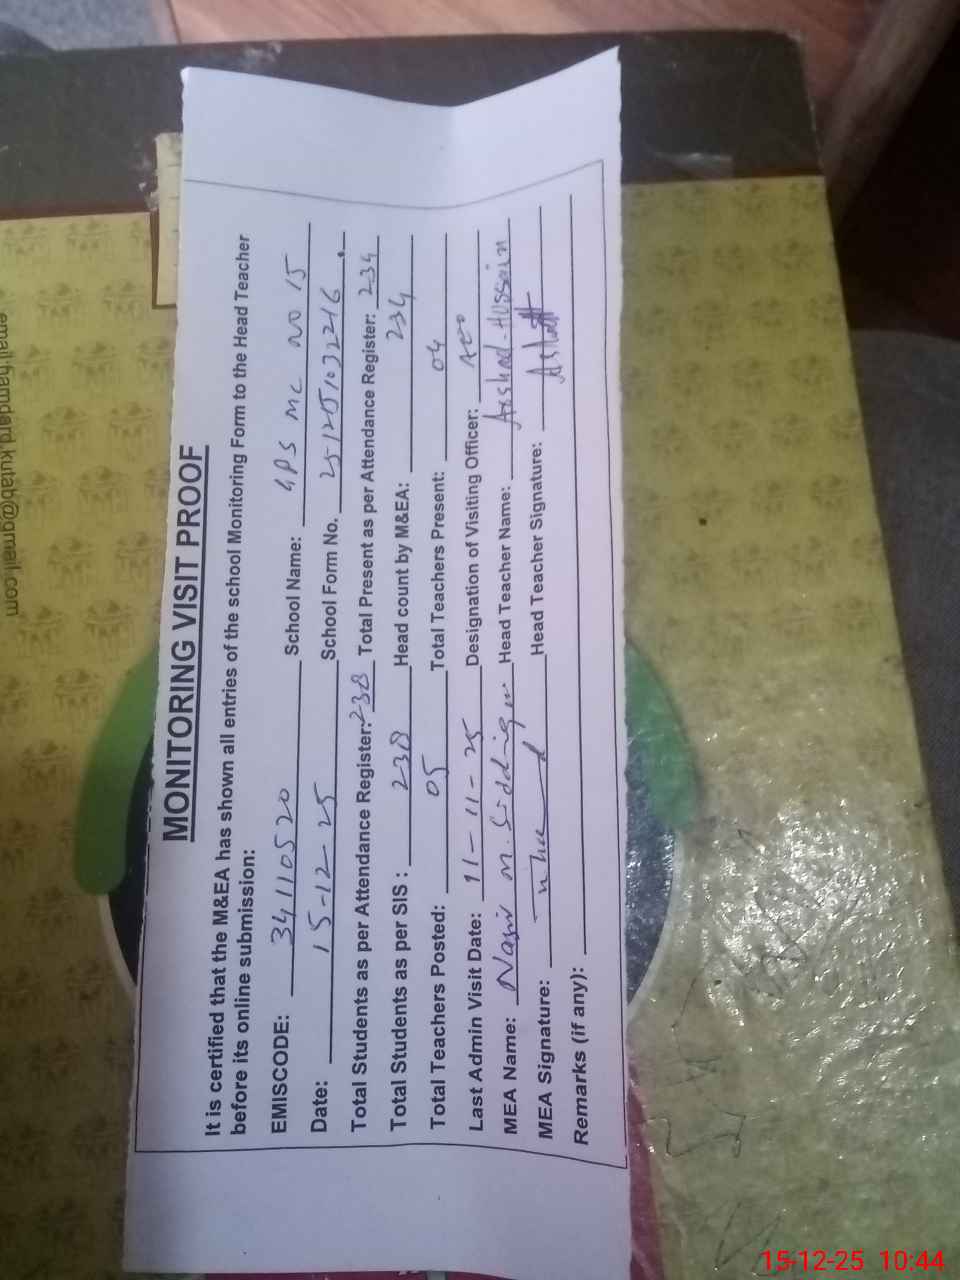 MONITORING VISIT PROOF
It is certified that the M&EA has shown all entries of the school Monitoring Form to the Head Teacher
before its online submission:
EMISCODE: 34110520 School Name: GPS MC NO 15
Date: 15-12-25 School Form No. 25-1251032216
Total Students as per Attendance Register: 238 Total Present as per Attendance Register: 234
Total Students as per SIS : 238 Head count by M&EA: 234
Total Teachers Posted: 05 Total Teachers Present: 04
Last Admin Visit Date: 11-11-25 Designation of Visiting Officer: AEO
MEA Name: Nasir M. Head Teacher Name: Arshad Hussain
MEA Signature: Head Teacher Signature:
Remarks (if any):
email:hamdard.kutab@gmail.com
15-12-25 10:44